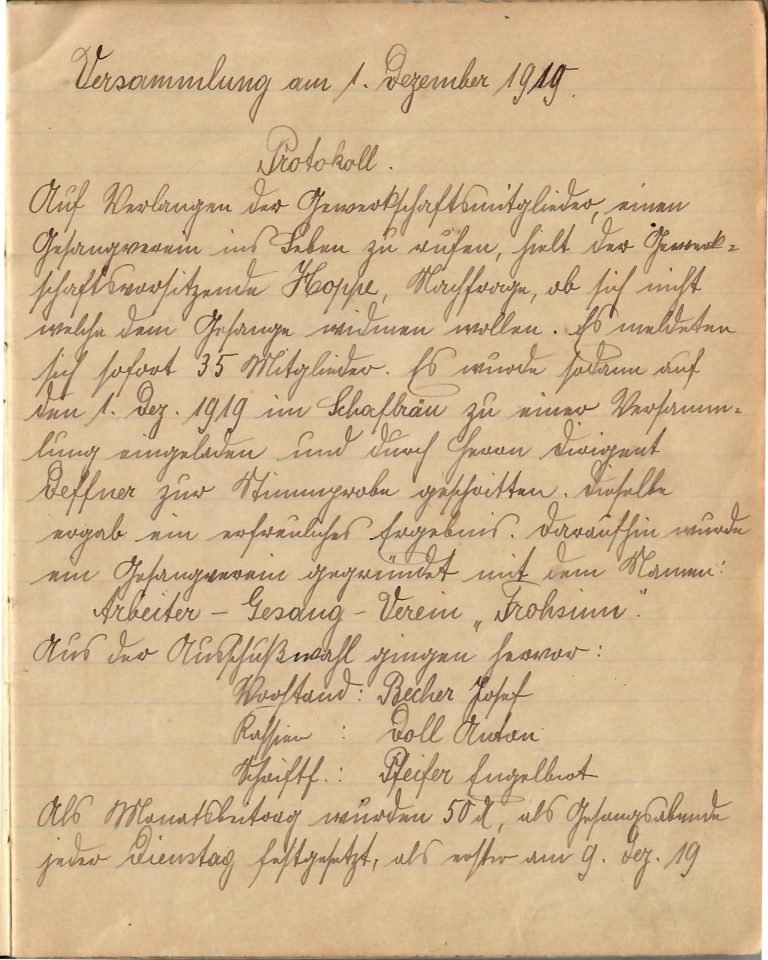 Versammlung am 1. Dezember 1919.
Protokoll.
Auf Verlangen der Gewerkschaftsmitglieder, einen
Gesangverein ins Leben zu rufen, hielt der Gewerk=
schaftsvorsitzende Hoppe, Nachfrage, ob sich nicht
welche dem Gesange widmen wollen. Es meldeten
sich sofort 35 Mitglieder. Es wurde sodann auf
den 1. Dez. 1919 im Schafbräu zu einer Versamm=
lung eingeladen und durch Herrn Dirigent
Deffner zur Stimmprobe geschritten. Dieselbe
ergab ein erfreuliches Ergebnis. Daraufhin wurde
ein Gesangverein gegründet mit dem Namen:
Arbeiter – Gesang – Verein „Frohsinn".
Aus der Ausschußwahl gingen hervor:
Vorstand: Becher Josef
Kassier : Doll Anton
Schriftf.: Pfeifer Engelbert
Als Monatsbeitrag wurden 50 ₰, als Gesangsabende
jeder Dienstag festgesetzt, als erster am 9. Dez. 19